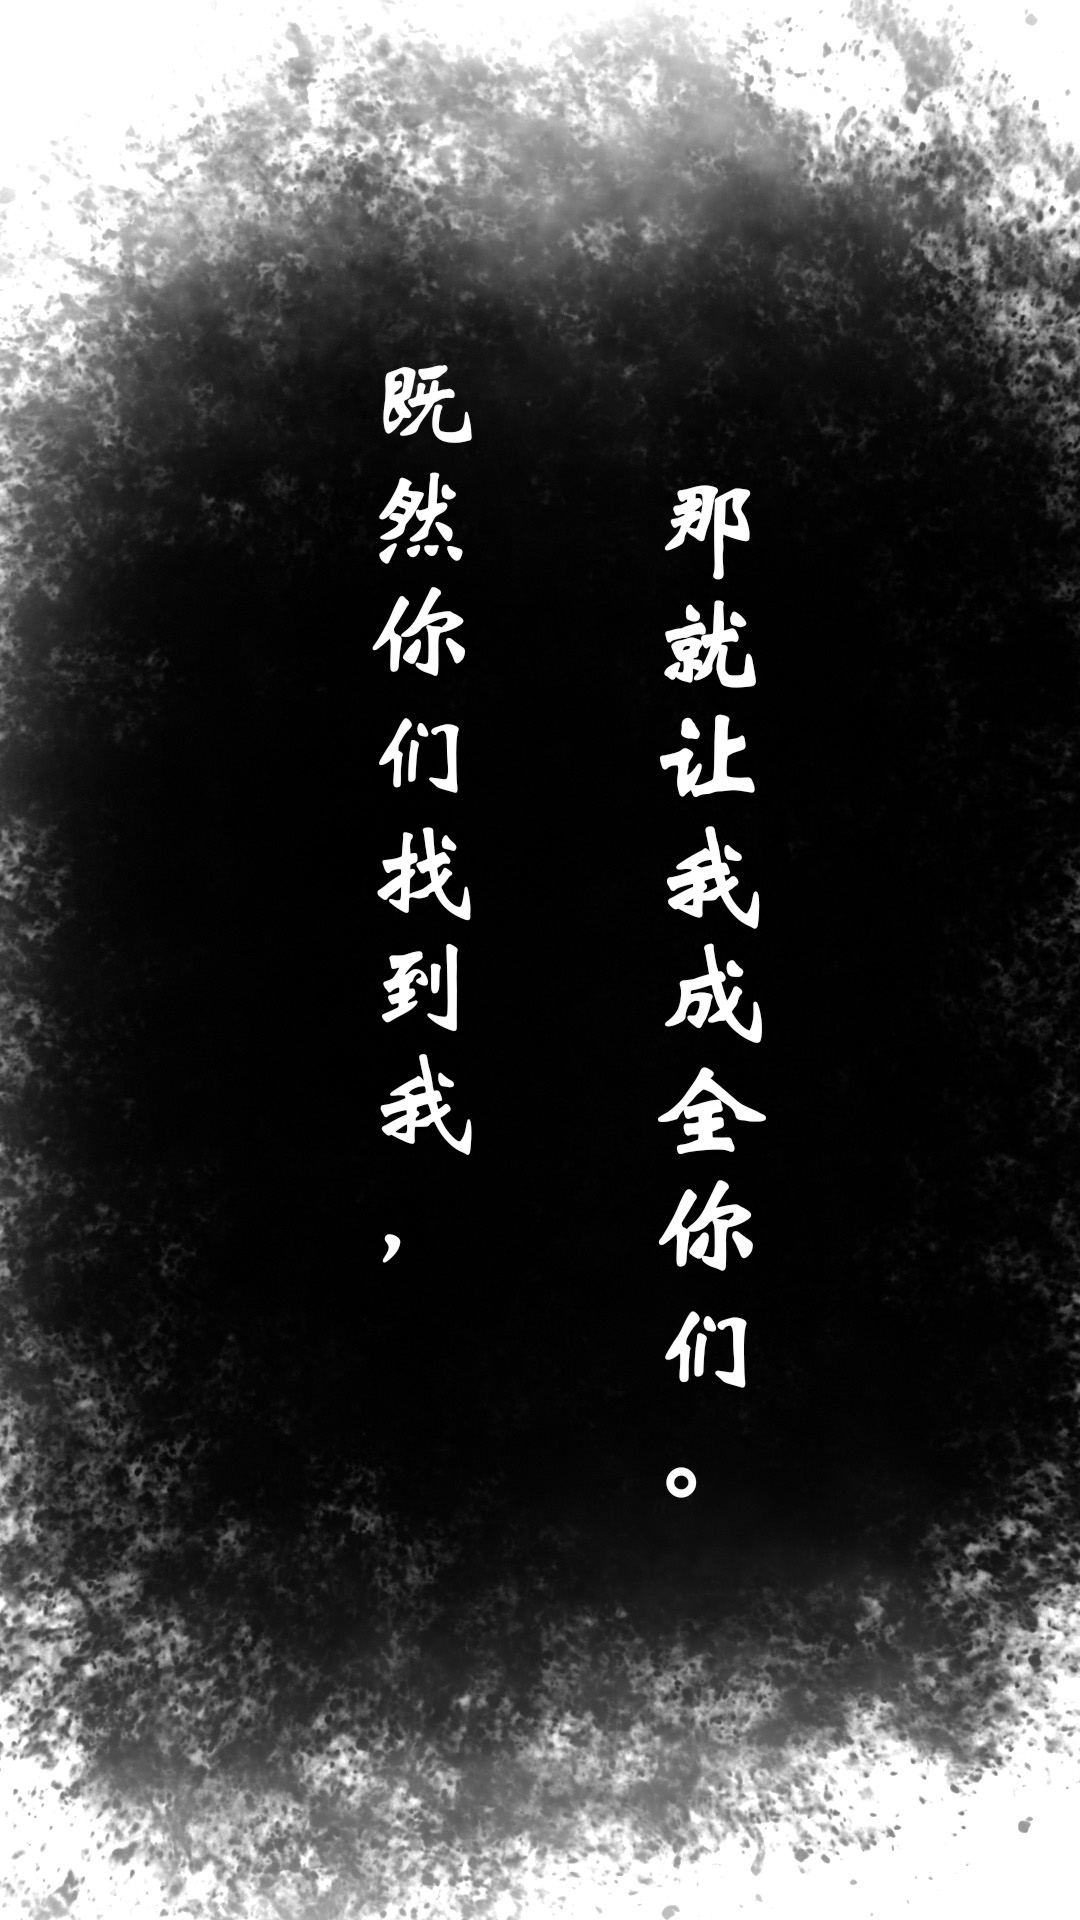 既然你们找到我，
那就让我成全你们。